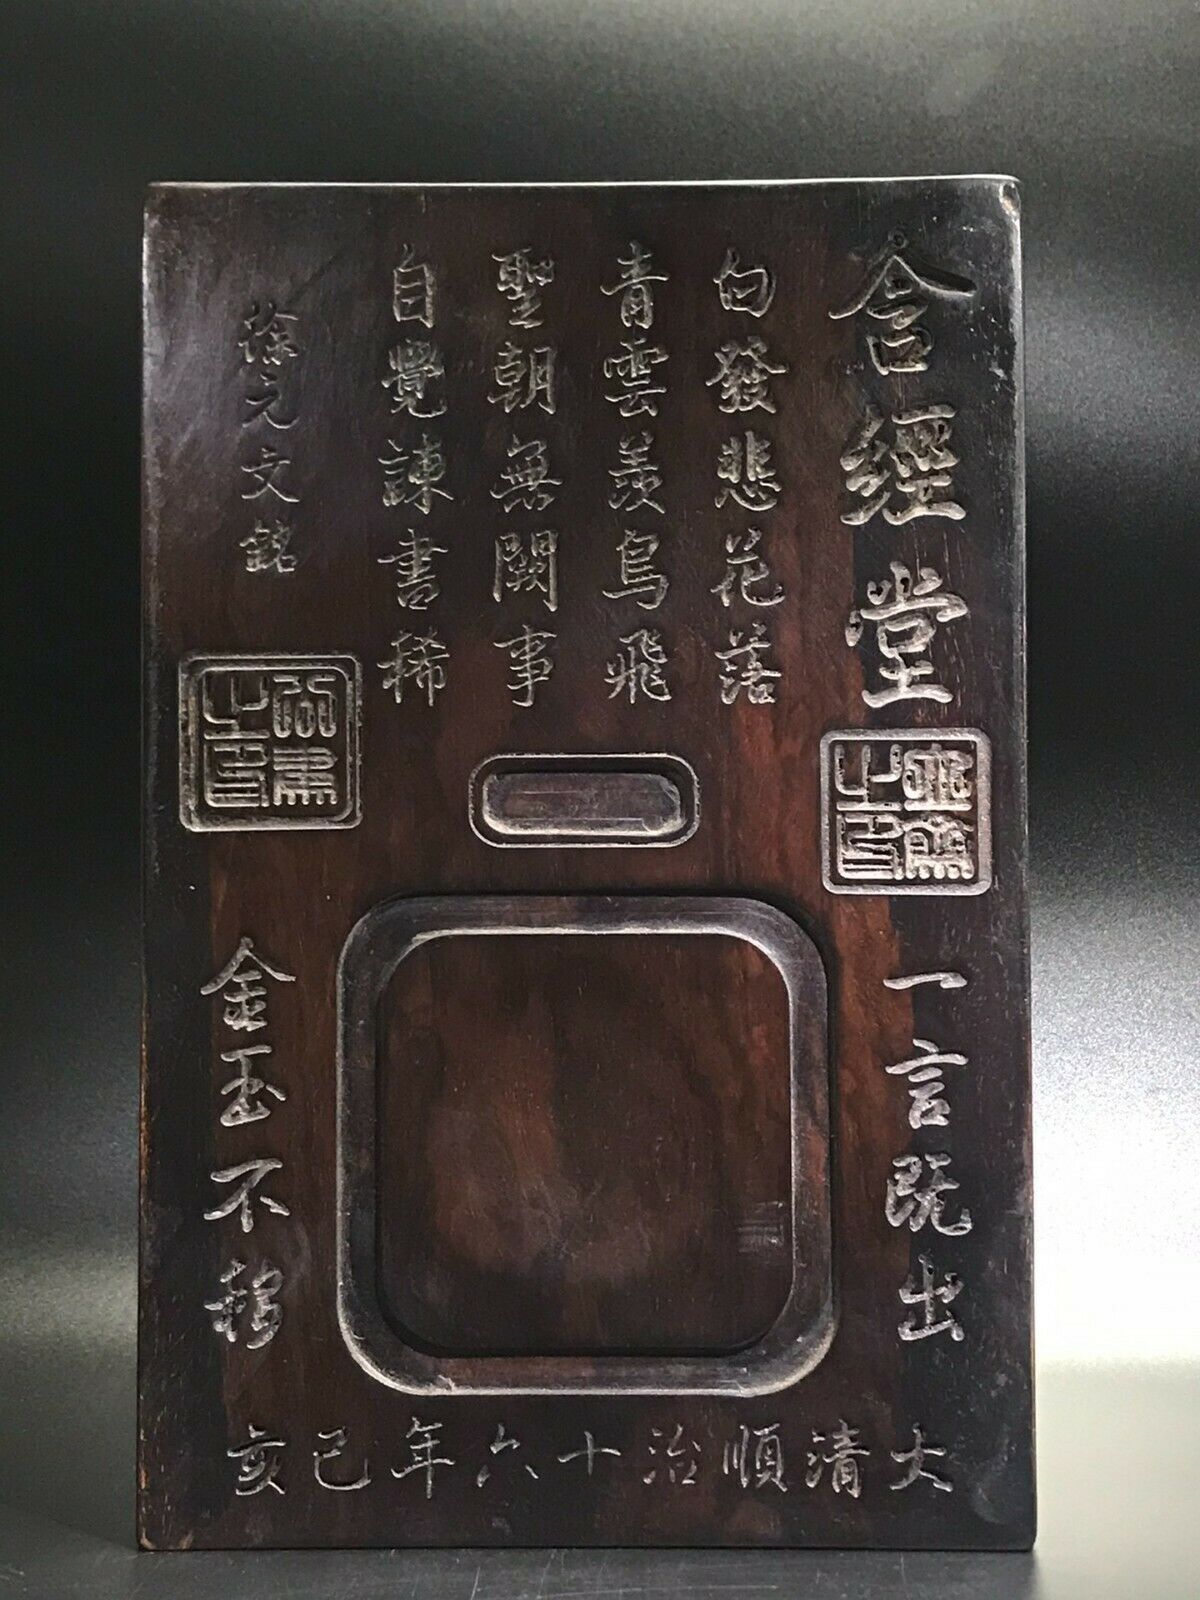 含經堂
白發悲花落
青雲羨鳥飛
聖朝無闕事
自覺諫書稀
徐元文銘
公肅之印
之印
一言既出
金玉不移
大清順治十六年己亥